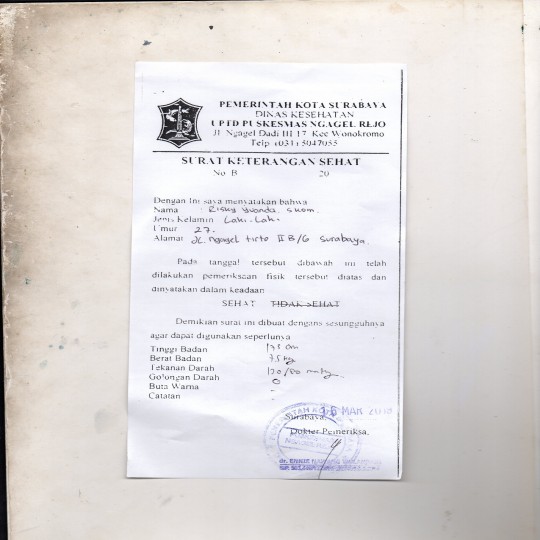 PEMERINTAH KOTA SURABAYA
DINAS KESEHATAN
UPTD PUSKESMAS NGAGEL REJO
Jl. Ngagel Dadi III 17 Kec Wonokromo
Telp (031) 5047055
SURAT KETERANGAN SEHAT
No B 20
Dengan Ini saya menyatakan bahwa
Nama : Risky Yuanda. S.Kom.
Jenis Kelamin Laki-Laki
Umur 27.
Alamat JL. Ngagel tirto II B/6 Surabaya.
Pada tanggal tersebut dibawah ini telah
dilakukan pemeriksaan fisik tersebut diatas dan
dinyatakan dalam keadaan
SEHAT TIDAK SEHAT
Demikian surat ini dibuat dengans sesungguhnya
agar dapat digunakan seperlunya
Tinggi Badan 175 cm
Berat Badan 75 kg
Tekanan Darah 120/80
Golongan Darah O
Buta Warna -
Catatan -
Surabaya, MAR
Dokter Pemeriksa,